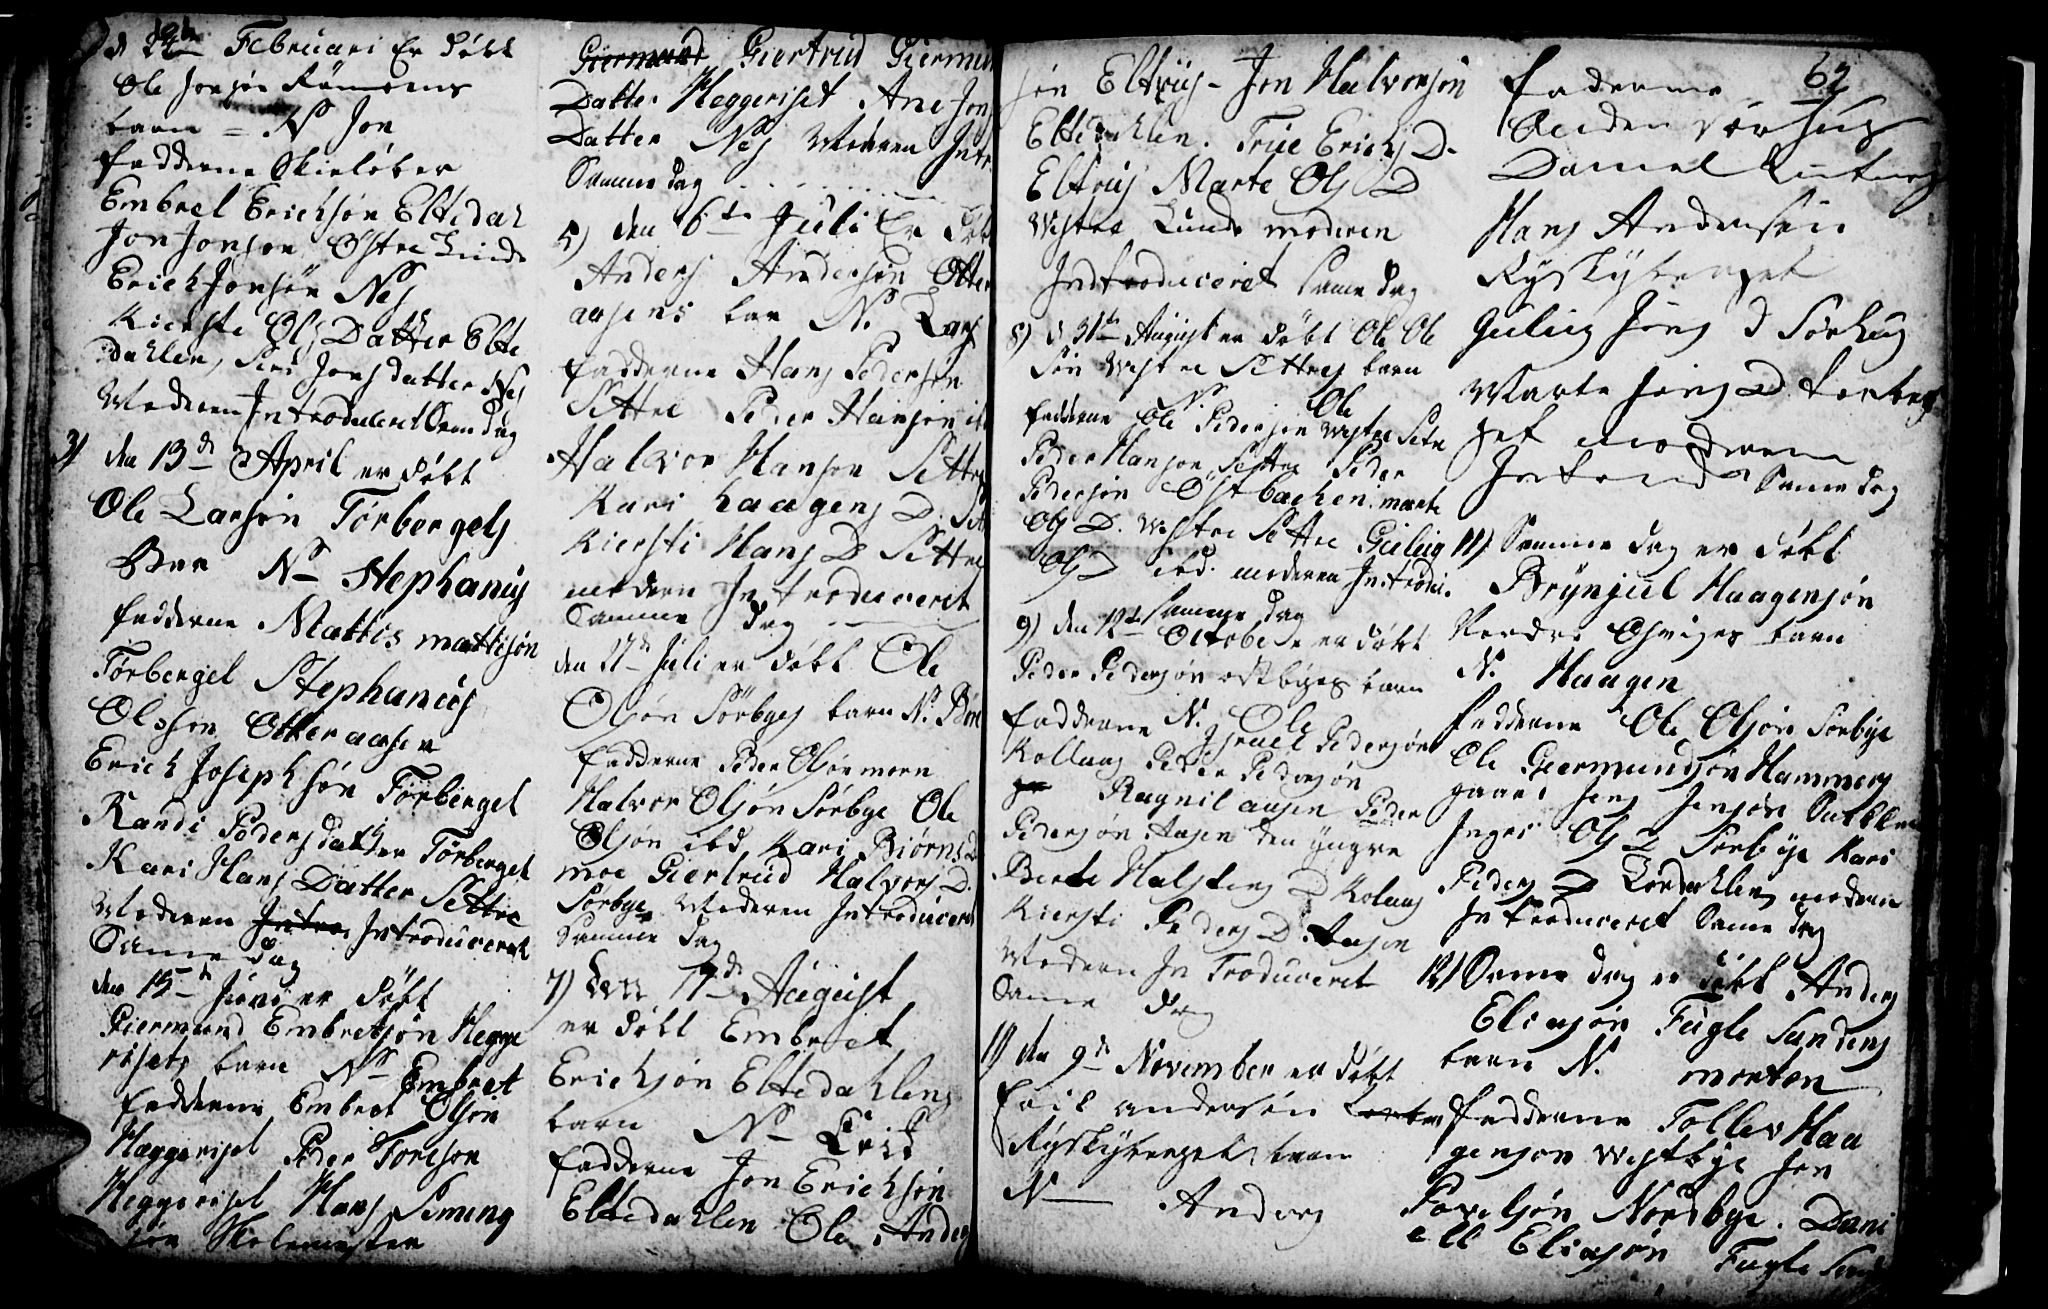 d 24 Februari er Døbt
Ole Jonsøn Rømoens
barn = N Jon
fadderne Skieløber
Embret Erichsøn Eltedahl
Jon Jonsøn Østre Linde
Erich Jonsøn Nes
Kiersti Ols Datter Elte
dahlen, Siri Jonsdatter Nes
Moderen Introduceret Sam dag
3) den 13de April er Døbt
Ole Larsøn Törbergets
Barn N Stephanus
fadderne Mattis mattisøn
Törberget Stephanus
Olssøn Otteraasen
Erich Josephsøn Törberget
Randi Pedersdatter Törberget
Kari Hans Datter Settre
Moderen Introduceret
Samme Dag
den 15de Juni er Døbt
Giermund Embretsøn Hegge
risets barn N Embret
fadderne Embret Olsøn
Heggeriset Peder Toresøn
Heggeriset Hans Simens
søn Skolemester
Giermund Giertrud Giermun
Datter Heggeriset Ane Jon
Datter Nes Moderen Intr
Samme dag
5) den 6te Juli er Døbt
Anders Andersøn Otter
aasens barn N. Lars
fadderne Hans Pedersøn
Settre Peder Hansøn
Halvor Hansøn Settre
Kari Haagens D. Set
Kiersti Hans D Settre
modern Introduceret
Samme dag
den 27de Juli er Døbt Ole
Olsøn Sörbyes barn N.
fadderne Peder Olsøn moen
Halvor Olsøn Sörbye Ole
Olsøn ibd. Kari Biörns D
moe Giertrud Halvors D.
Sörbye Moderen Introduceret
Samme dag
7) Den 17de August
er Døbt Embret
Erichsøn Eltedahlens
barn N Erik
fadderne Jon Erichsøn
Eltedahlen Ole Anders
søn Eltrüs - Jon Halvorsøn
Eltedahlen. Trüe Erichs D.
Eltrüs Marte Ols D
Westre Lunde moderen
Introduceret Same dag
8) d 31te August er Døbt Ole Ole
Søn Westre Settres barn
N Ole
fadderne Ole Pedersøn Westre Setre
Peder Hansøn Settre Peder
Pedersøn Östbacken. marte
Ols D. Westre Settre Gulug
Ols D ibd. moderen Introdu.
Samme dag
9) den 12te Octobe er Døbt
Peder Pedersøn ostbyes barn
N. Ole
fadderne Israel Pedersøn
Kollaas Peder Pedersøn
Ragnil aasen Peder
Pedersøn Aasen den yngre
Berte Halstens D Kolaas
Kiersti Peders D. Aasen
Modern Introduceret
Same dag
10 den 9de November er Døbt
Andersøn
Ryskyberget barn
N Anders
fadderne
62
Sörhus
Daniel
Hans Andersøn
Ryskyberget
Gulug Jons D Sörhus
Marte Jons D Torber
get moderen
Samme dag
11) Samme dag er Døbt
Brynjul Haagensøn
Nordre barn
N. Haagen
fadderne Ole Olsøn Sorbye
Ole Giermundsøn Hammers
gaard Jens Jensøn
Inger Ols D Sorbye Kari
Peders D Lördahlen modern
Introduceret Same dag
12) Samme dag er Døbt Anders
Eliasøn Fugle Sandens
barn N. morten
fadderne Tollev Haa
gensøn Westbye Jon
Povelsøn Nordbye. Dani
ell Eliasøn Fugle San